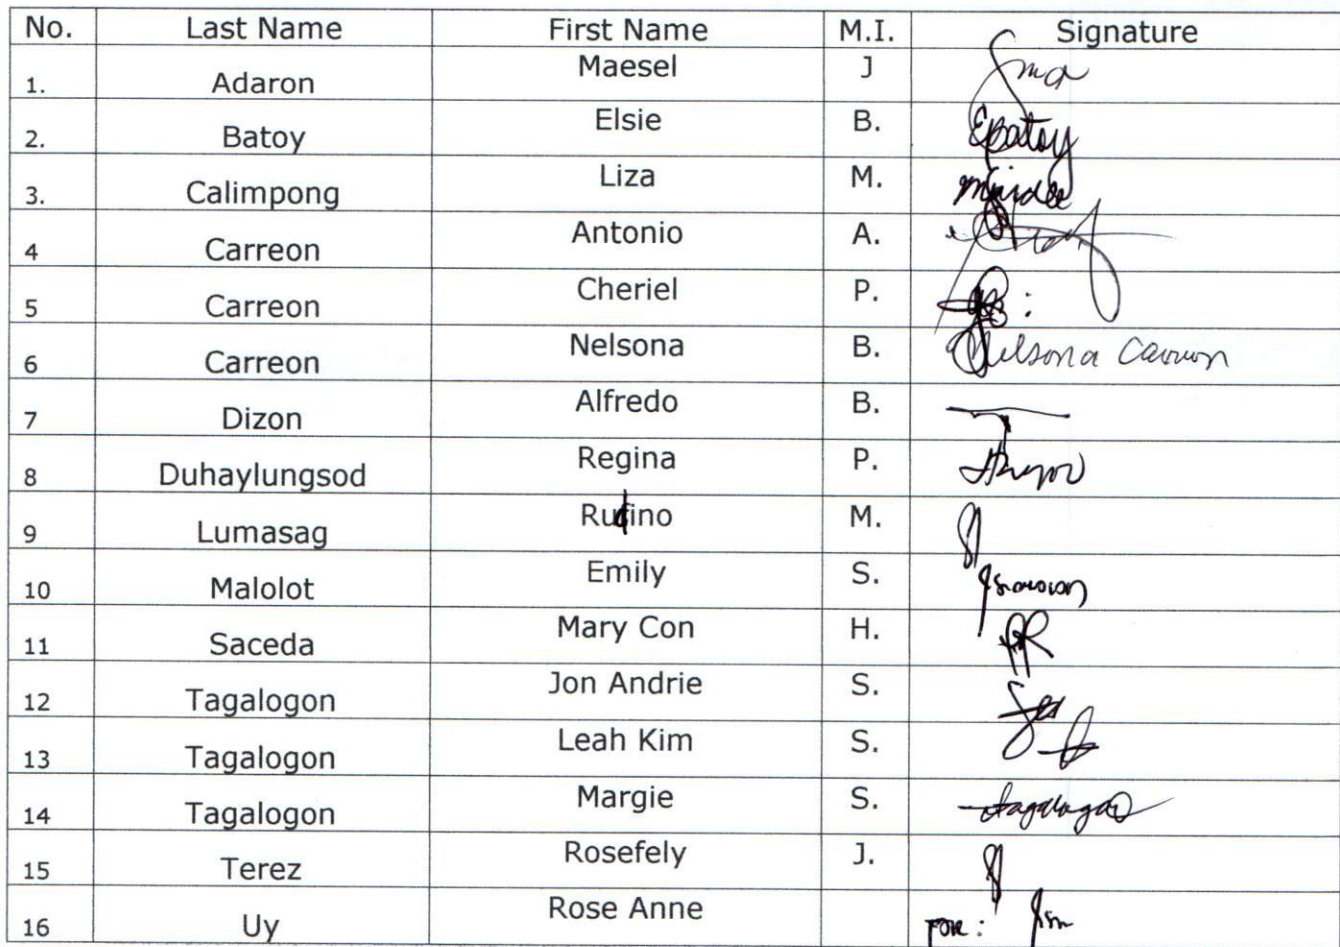 No. Last Name First Name M.I. Signature
1. Adaron Maesel J
2. Batoy Elsie B. EBatoy
3. Calimpong Liza M.
4 Carreon Antonio A.
5 Carreon Cheriel P.
6 Carreon Nelsona B. Nelsona Carreon
7 Dizon Alfredo B.
8 Duhaylungsod Regina P.
9 Lumasag Rudino M.
10 Malolot Emily S.
11 Saceda Mary Con H.
12 Tagalogon Jon Andrie S.
13 Tagalogon Leah Kim S.
14 Tagalogon Margie S. Tagalogon
15 Terez Rosefely J.
16 Uy Rose Anne FOR: